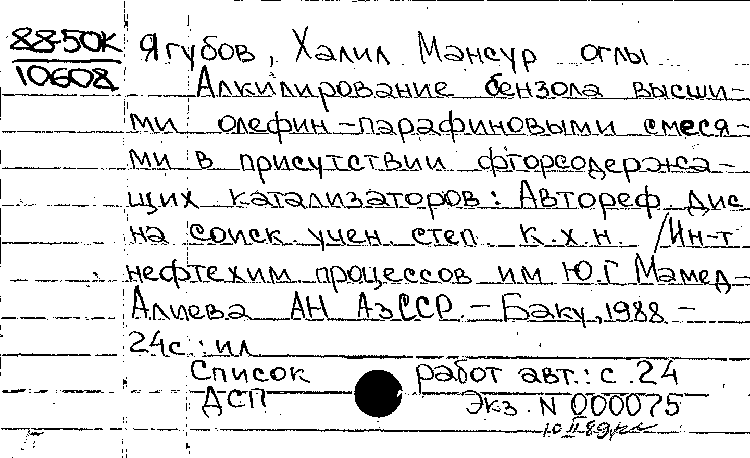 88-50К Ягубов, Халил Мансур оглы
10608 Алкилирование бензола высши-
ми олефин-парафиновыми смеся-
ми в присутствии фторсодержа-
щих катализаторов: Автореф. дис
на соиск учен. степ. к.х.н. /Ин-т
нефтехим процессов им Ю.Г Мамед-
Алиева АН АзССР. - Баку, 1988 -
24с.: ил
Список работ авт.: с. 24
ДСП Экз. N 000075
10 II 89